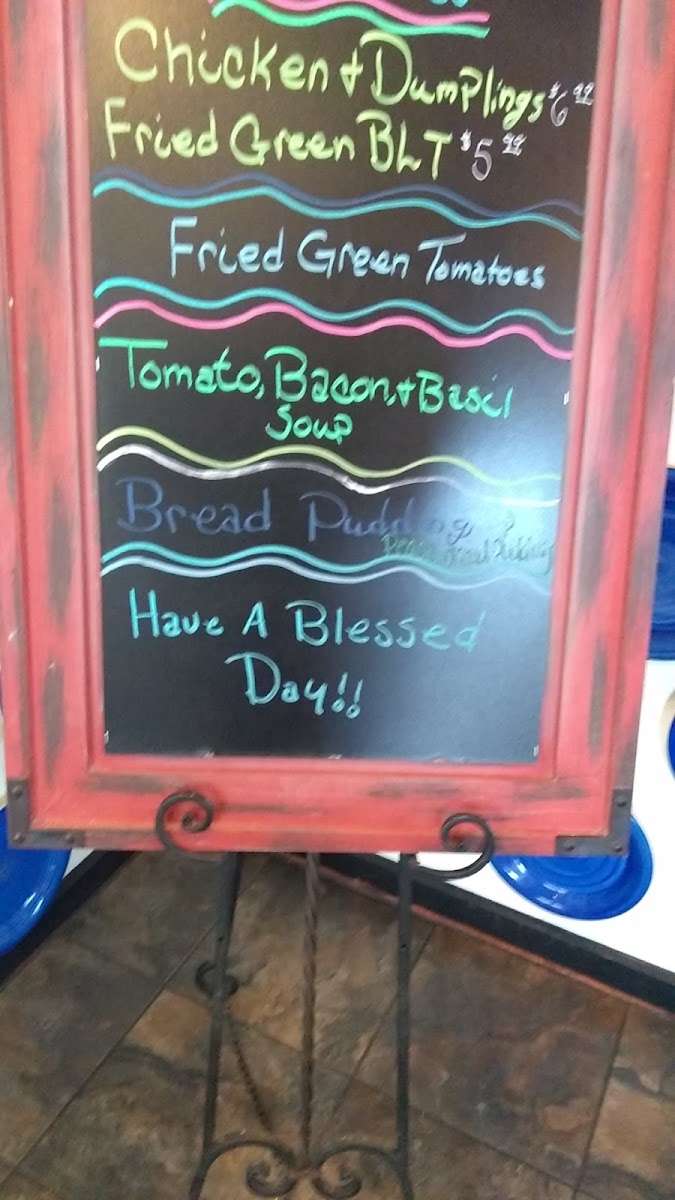 Chicken & Dumplings $6.99
Fried Green BLT $5.99
Fried Green Tomatoes
Tomato, Bacon, & Basil
Soup
Bread Pudding
Have A Blessed
Day!!